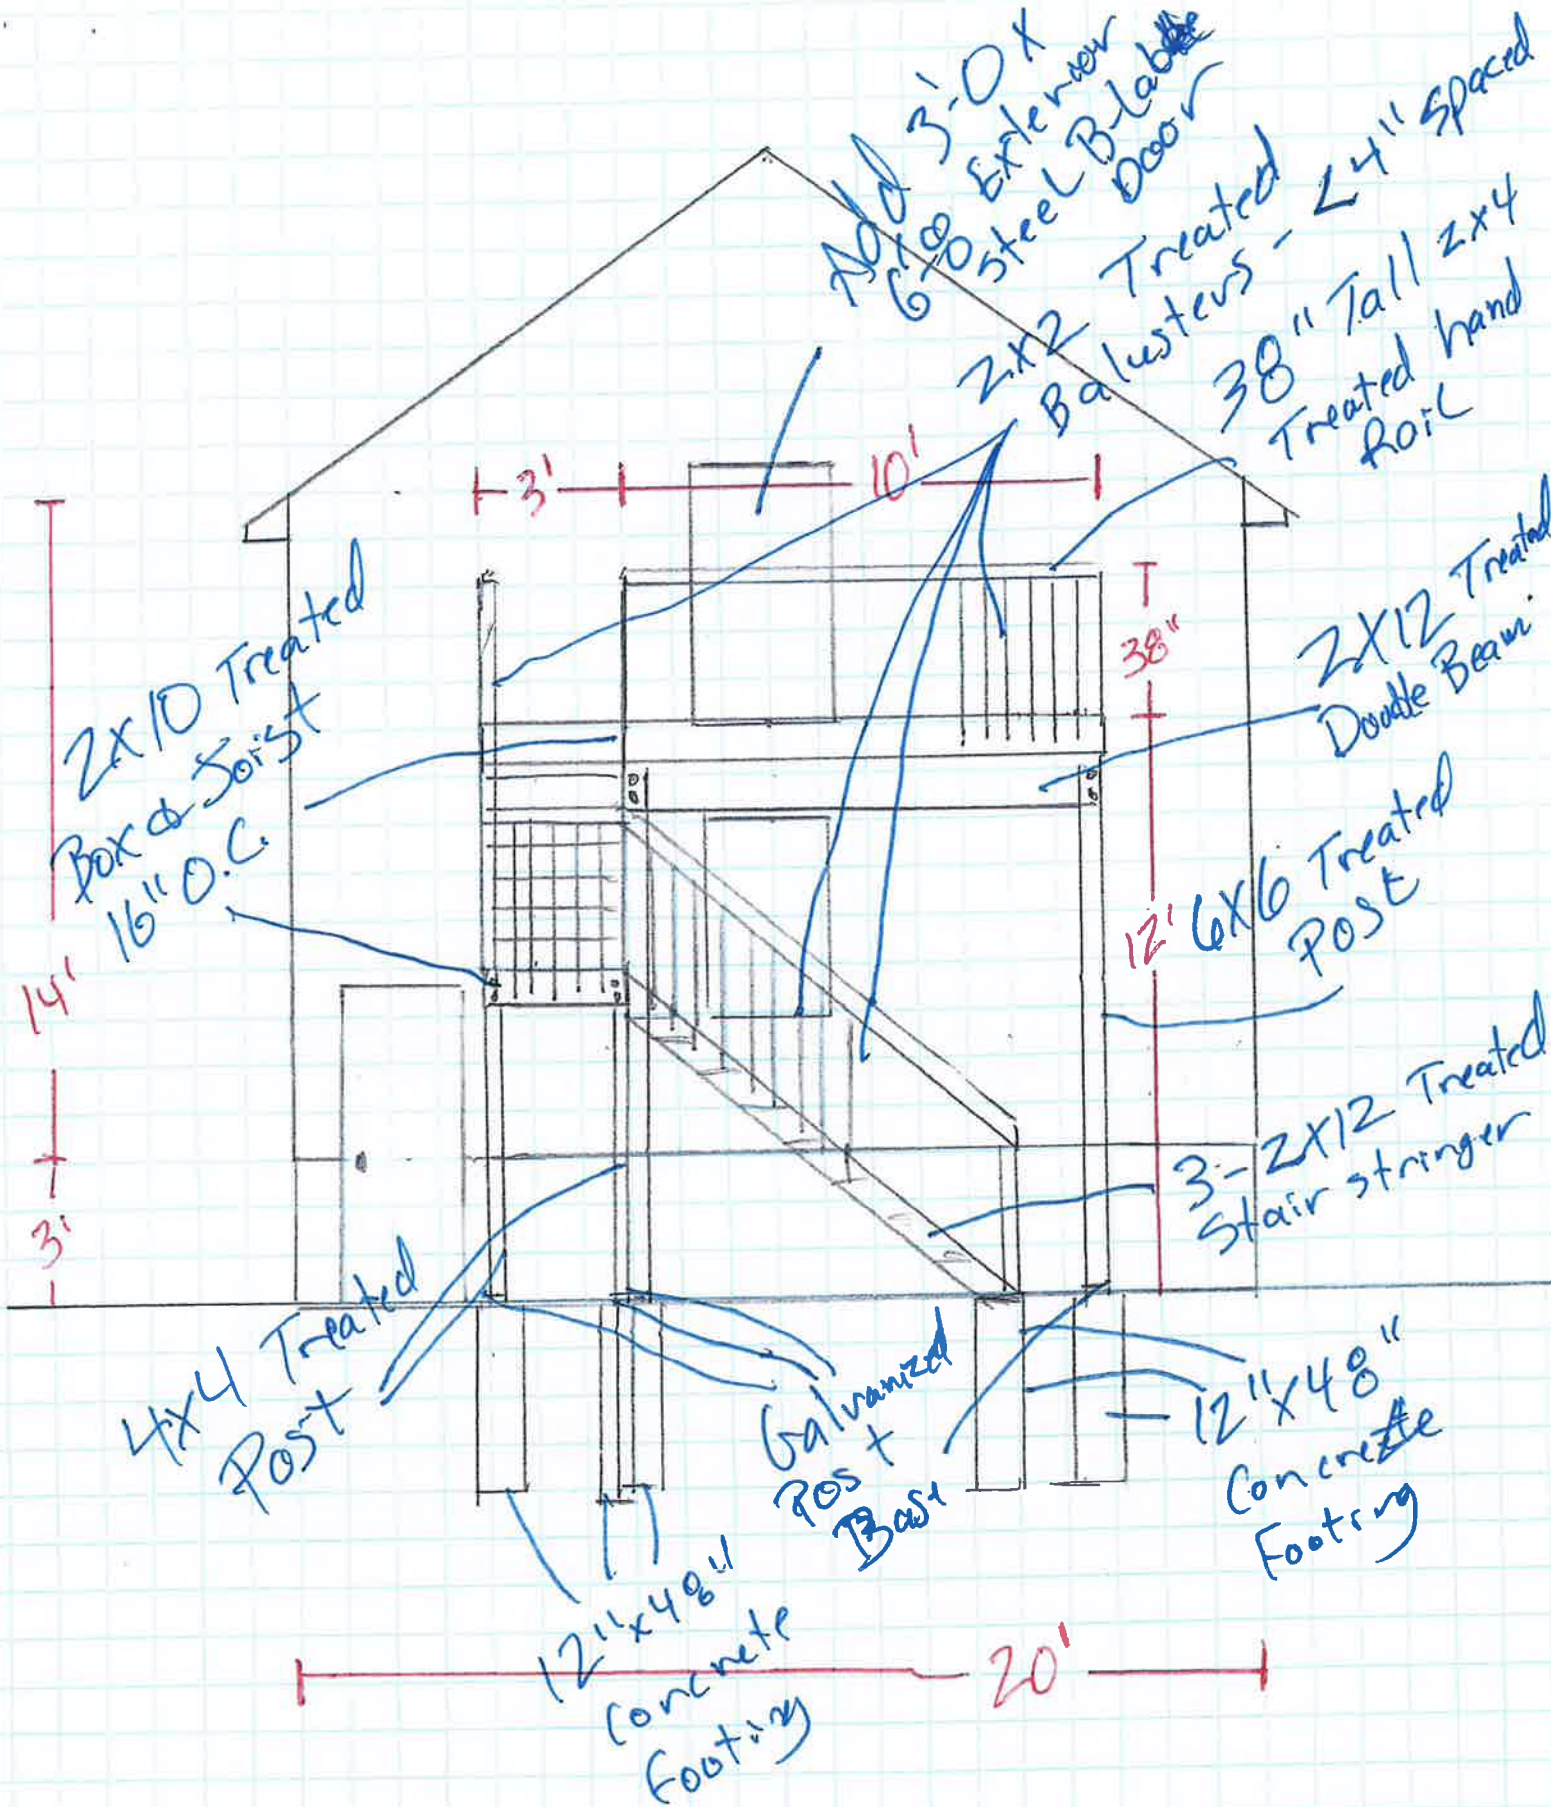 Add 3'-0 x
6'-8 Exterior
Steel B-Lable
Door
2x2 Treated
Balusters - <4" spaced
38" Tall 2x4
Treated hand
Rail
3'
10'
2X10 Treated
Box & Joist
16" O.C.
38"
2X12 Treated
Double Beam
14'
12'
6X6 Treated
Post
3'
3-2X12 Treated
Stair stringer
4x4 Treated
Post
Galvanized
Post
Base
12"x48"
Concrete
Footing
12"x48"
Concrete
Footing
20'